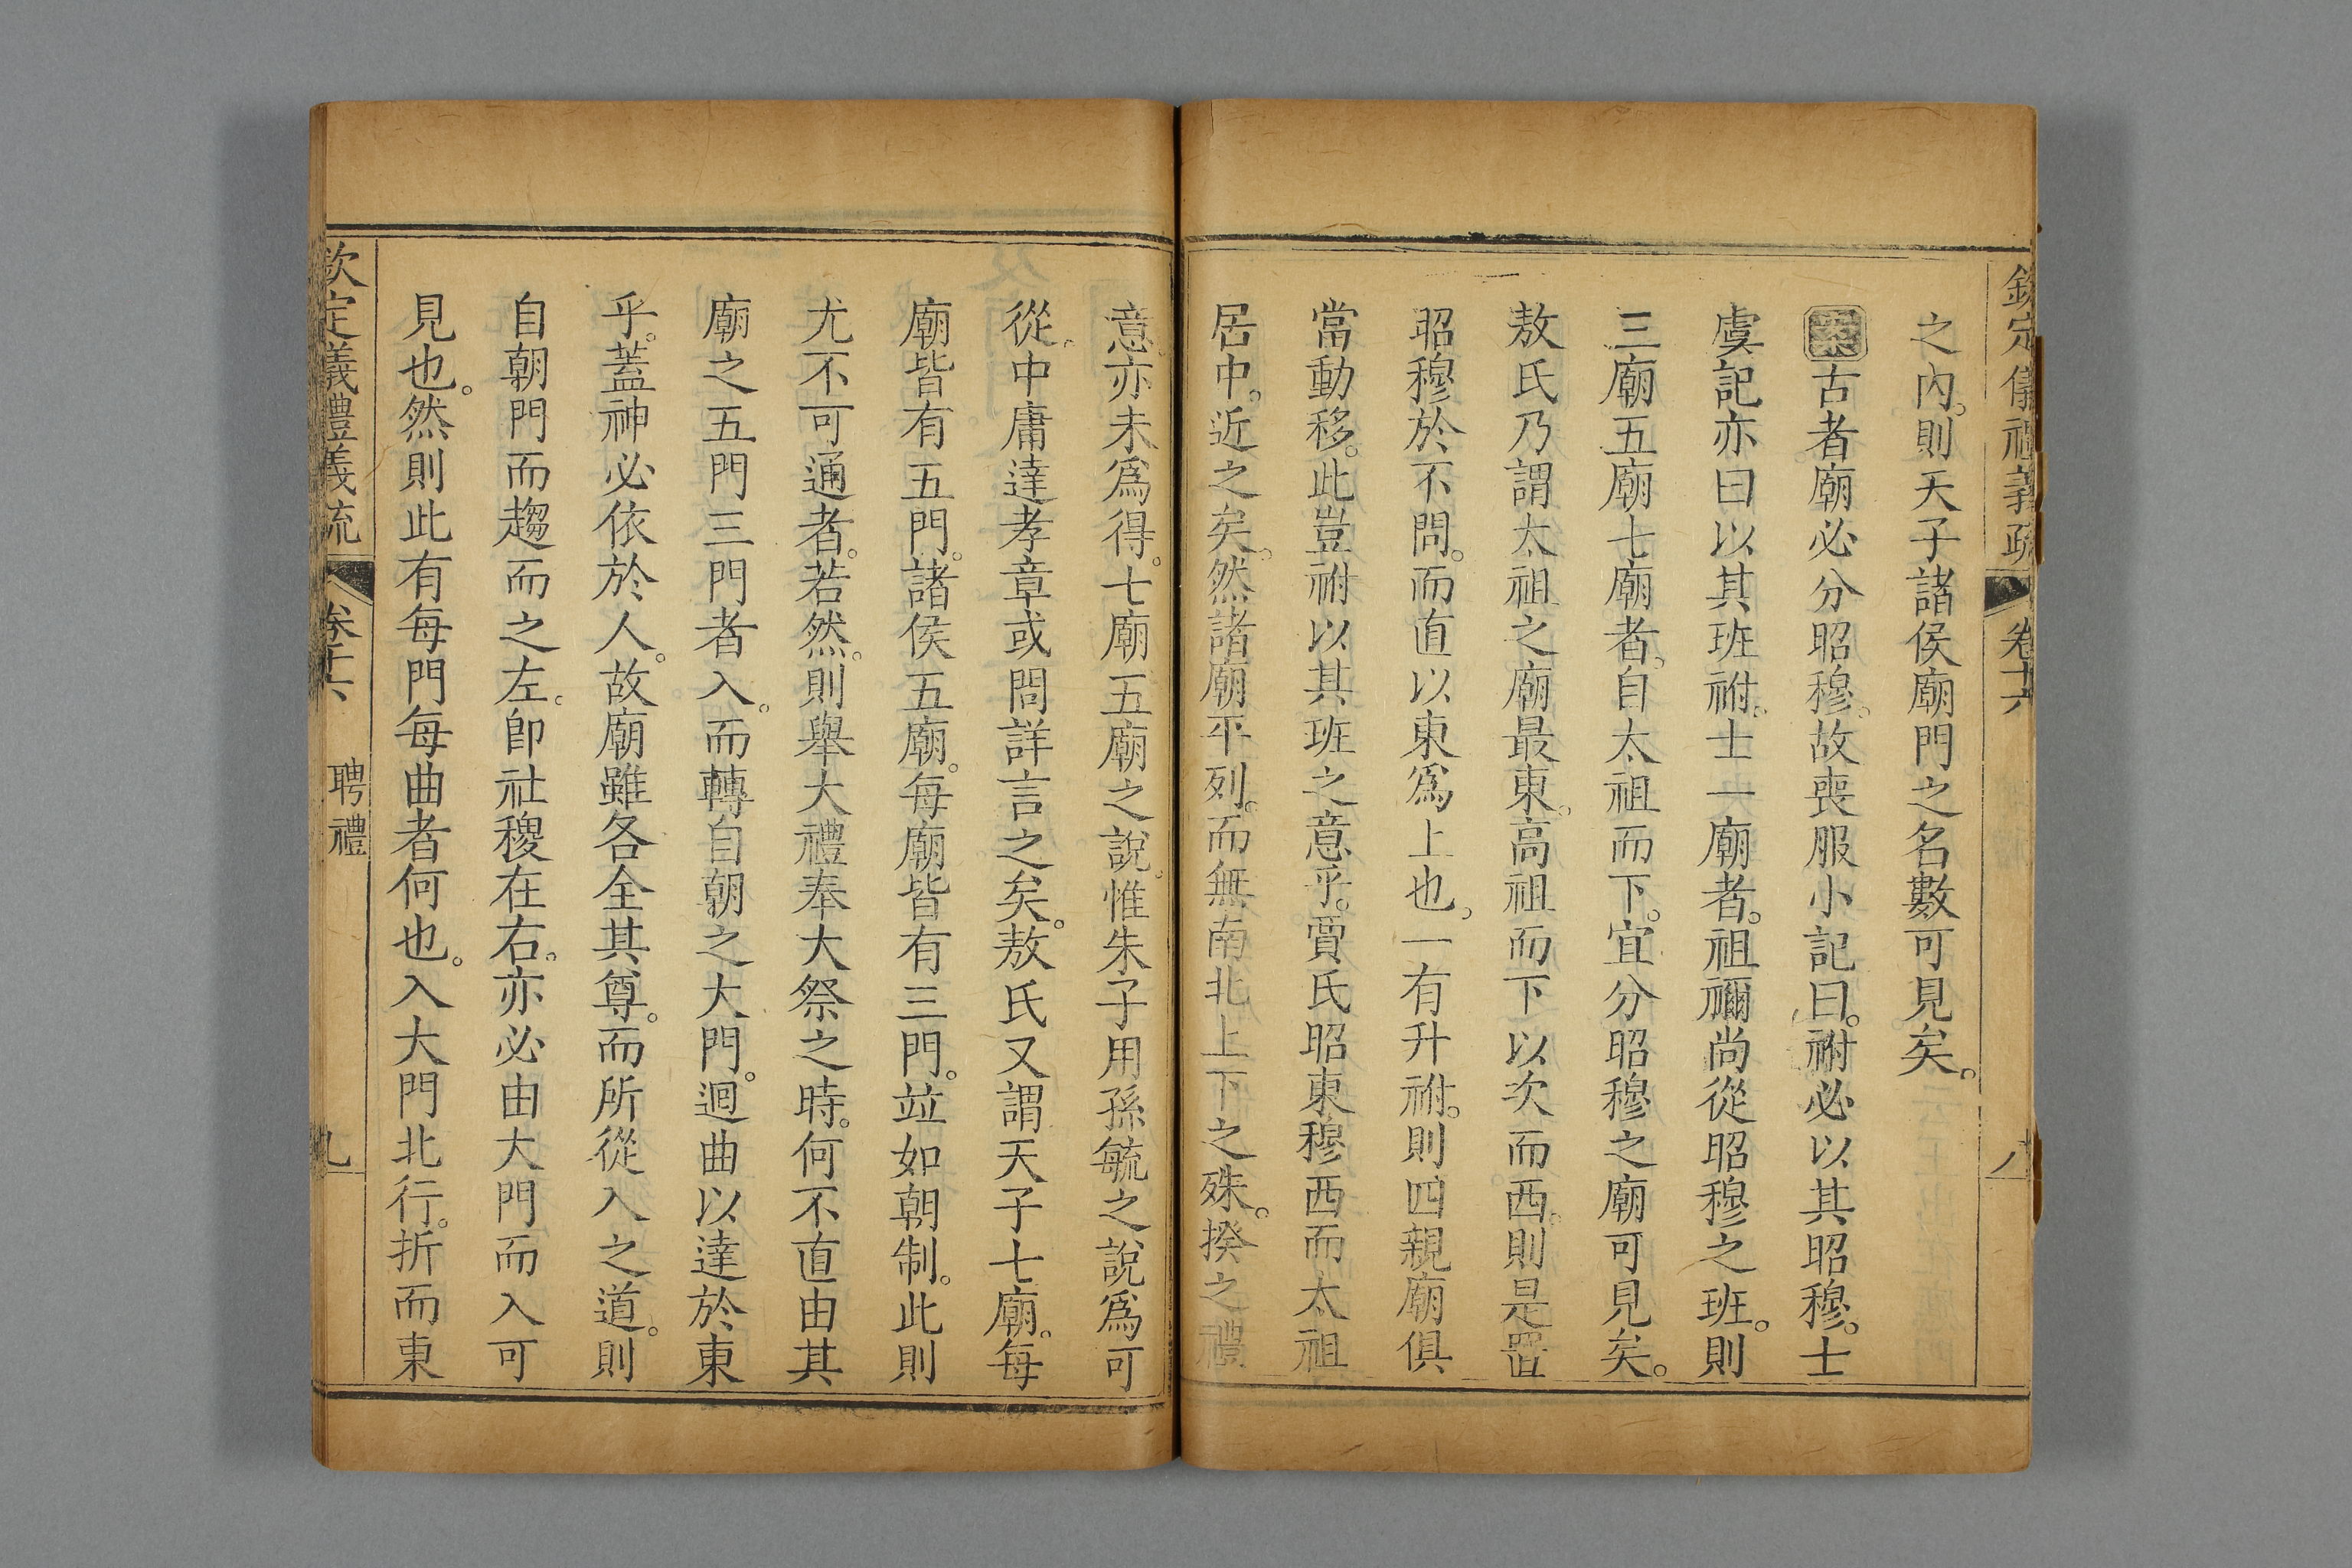 欽定儀禮義疏 卷十六 八
之內。則天子諸侯廟門之名數可見矣。
案古者廟必分昭穆。故喪服小記曰。祔必以其昭穆。士
虞記亦曰以其班祔。士一廟者。祖禰尚從昭穆之班。則
三廟五廟七廟者。自太祖而下。宜分昭穆之廟可見矣。
敖氏乃謂太祖之廟最東。高祖而下以次而西。則是置
昭穆於不問。而直以東爲上也。一有升祔。則四親廟俱
當動移。此豈祔以其班之意乎。賈氏昭東穆西而太祖
居中。近之矣。然諸廟平列。而無南北上下之殊。揆之禮
意。亦未爲得。七廟五廟之說。惟朱子用孫毓之說爲可
從。中庸達孝章或問詳言之矣。敖氏又謂天子七廟。每
廟皆有五門。諸侯五廟。每廟皆有三門。竝如朝制。此則
尤不可通者。若然。則舉大禮奉大祭之時。何不直由其
廟之五門三門者入。而轉自朝之大門。迴曲以達於東
乎。蓋神必依於人。故廟雖各全其尊。而所從入之道。則
自朝門而趨而之左。卽社稷在右。亦必由大門而入可
見也。然則此有每門每曲者何也。入大門北行。折而東
欽定儀禮義疏 卷十六 聘禮 九